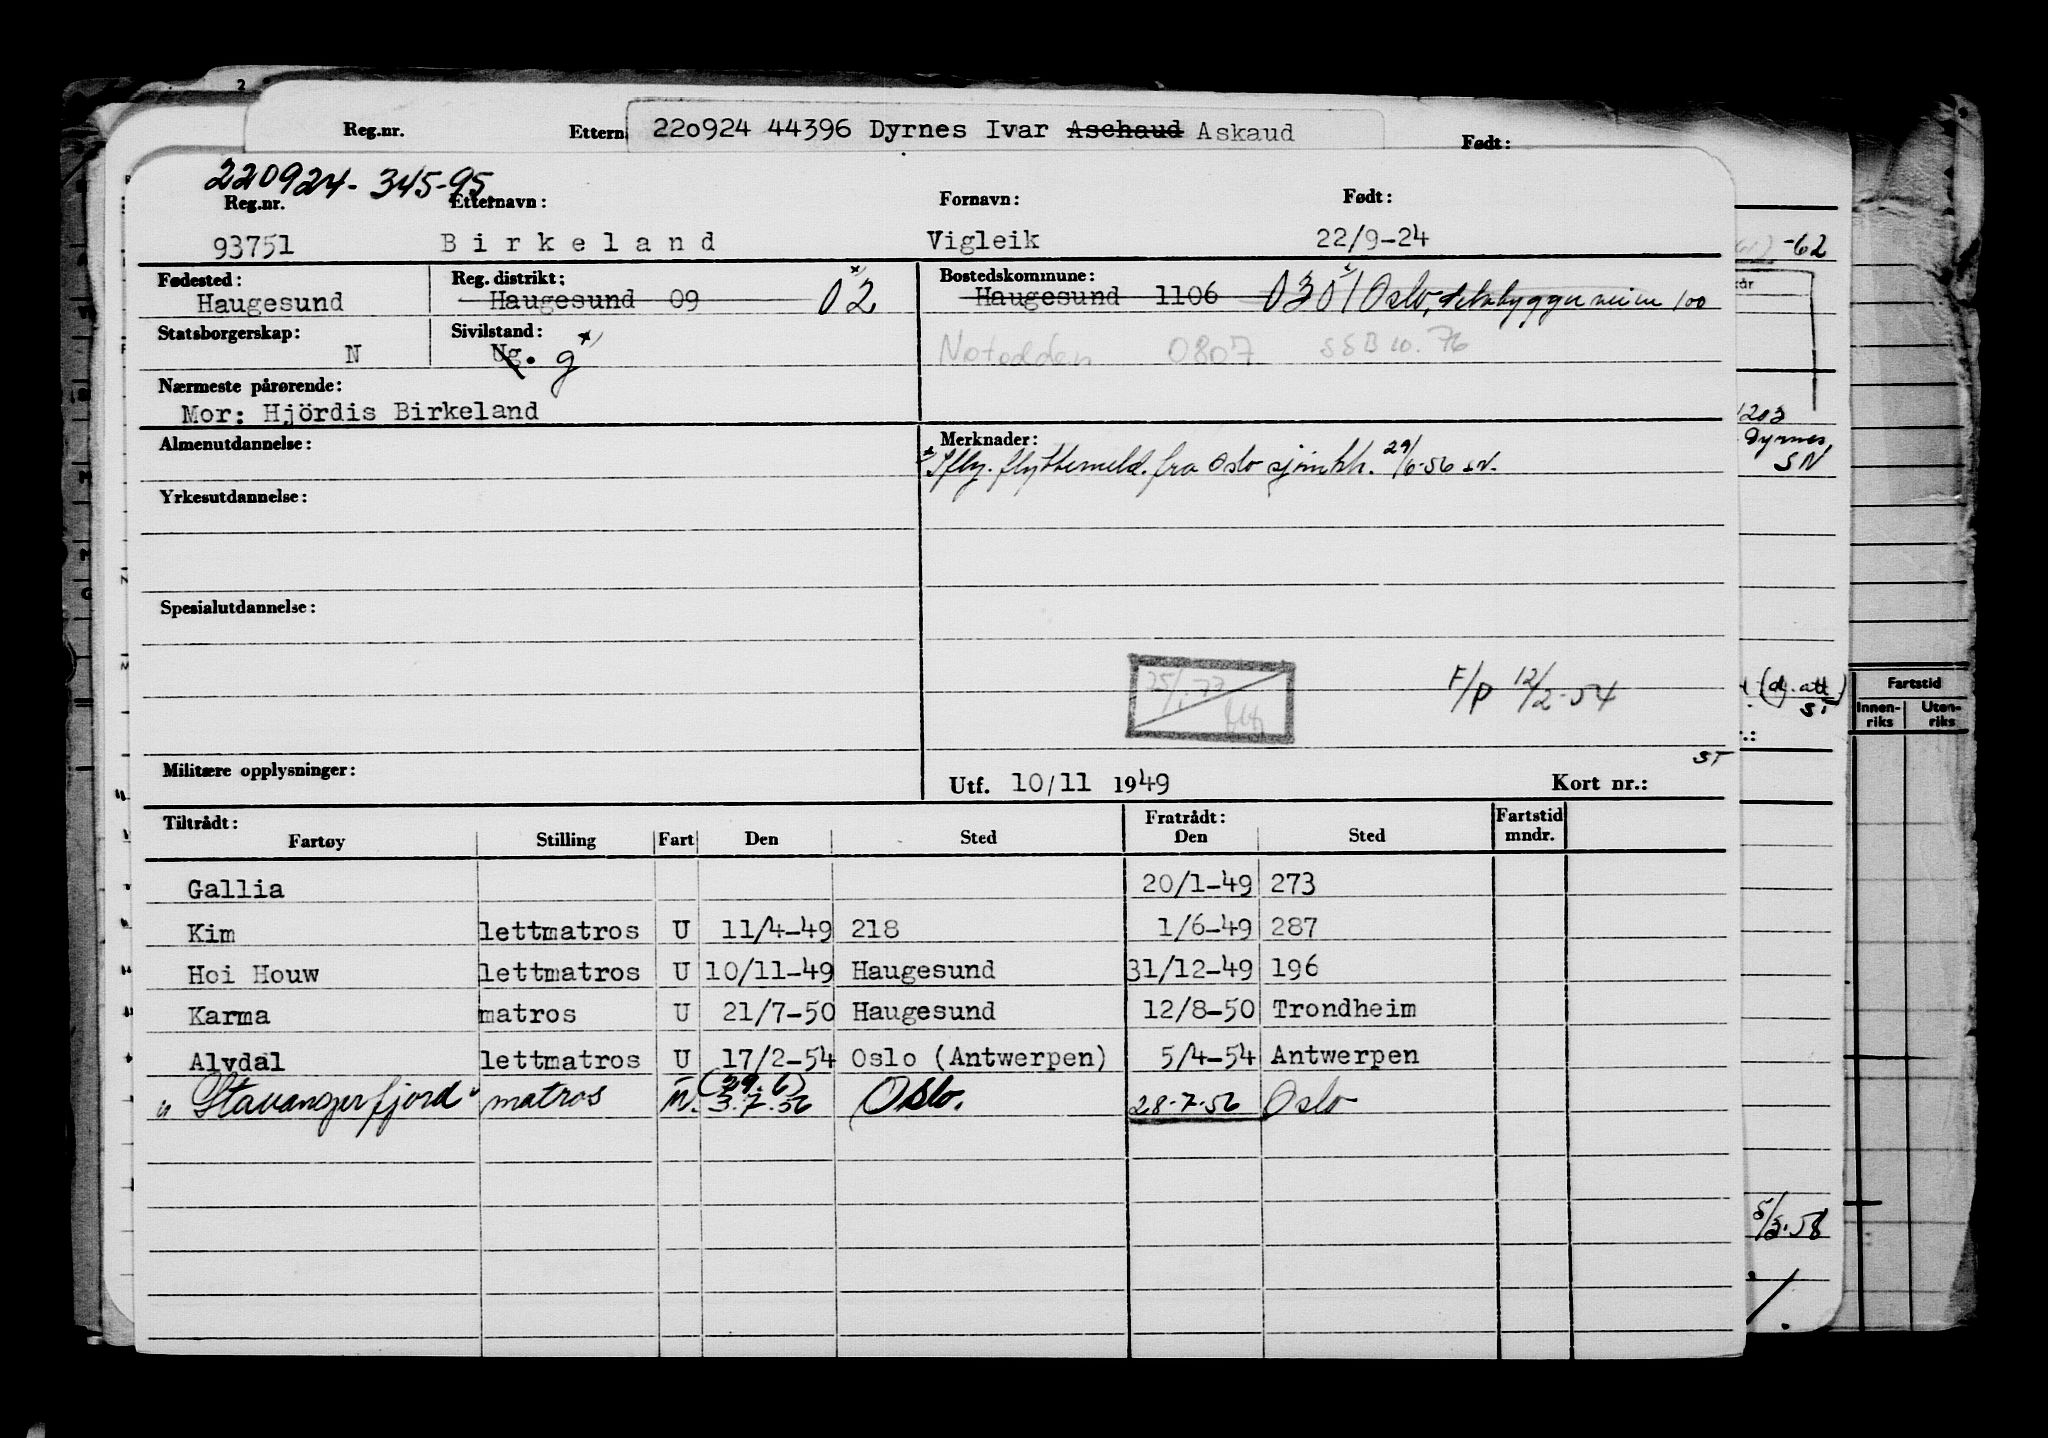 2
Reg.nr. Ettern 220924 44396 Dyrnes Ivar Aschaud Askaud Født:
220924-345-95
Reg.nr. Etternavn: Fornavn: Født:
93751 Birkeland Vigleik 22/9-24
-62
Fødested: Reg. distrikt: Bostedskommune:
Haugesund Haugesund 09 02 Haugesund 1106 0301 Oslo, 100
Statsborgerskap: Sivilstand:
N Ug. g Notodden 0807 SSB 10.76
Nærmeste pårørende:
Mor: Hjördis Birkeland
1203
Dyrnes,
SN
Almenutdannelse: Merknader:
Iflg. flyttemeld. fra Oslo sjømkk. 29/6-56 SN.
Yrkesutdannelse:
Spesialutdannelse:
25/1.77
F/P 12/2-54
(dj. att)
ST
Fartstid
Innen-riks Uten-riks
ST
Militære opplysninger: Utf. 10/11 1949 Kort nr.:
Tiltrådt: Fratrådt: Fartstid
Fartøy Stilling Fart Den Sted Den Sted mndr.
Gallia 20/1-49 273
Kim lettmatros U 11/4-49 218 1/6-49 287
Hoi Houw lettmatros U 10/11-49 Haugesund 31/12-49 196
Karma matros U 21/7-50 Haugesund 12/8-50 Trondheim
Alvdal lettmatros U 17/2-54 Oslo (Antwerpen) 5/4-54 Antwerpen
(29.6)
"Stavangerfjord" matros U. 3.7.56 Oslo. 28.7.56 Oslo
5/3.58